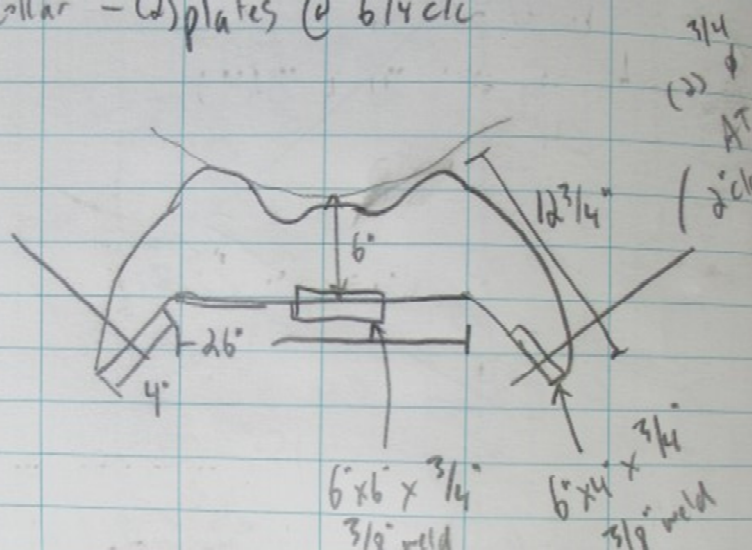 ollar - (2) plates @ 6 1/4 c/c
3/4 ϕ
(2)
AT
( 2" cl
12 3/4"
6"
26"
4"
6" x 6" x 3/4"
3/8" weld
6" x 4" x 3/4"
3/8" weld